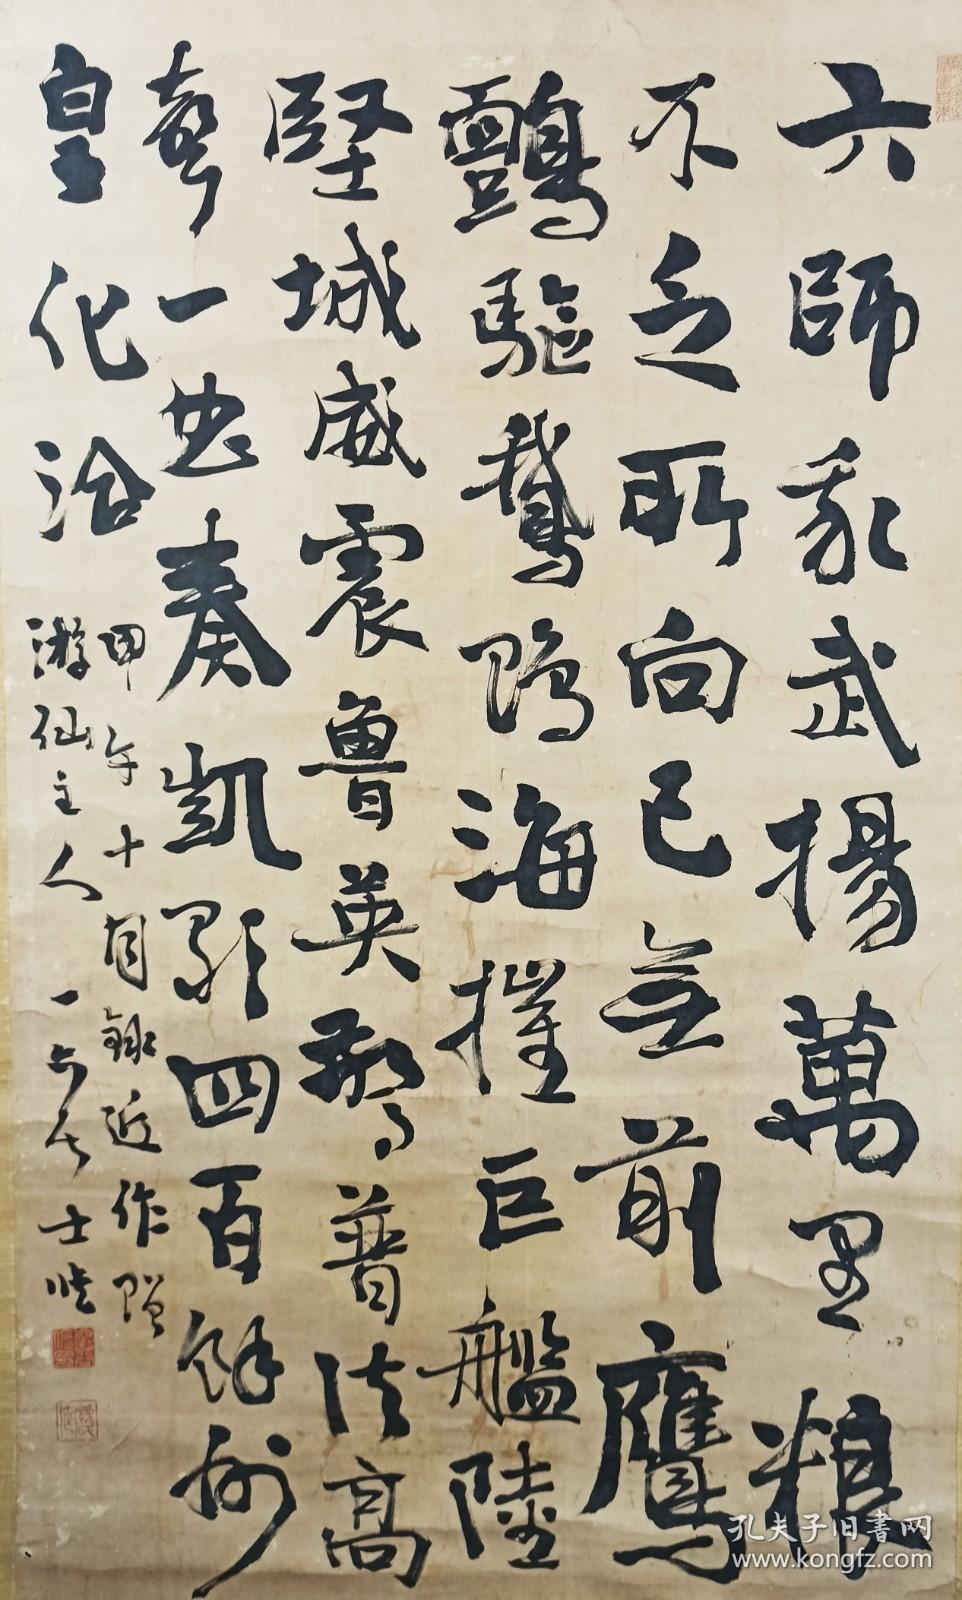 六師我武揚萬里粮
不乏所向已無前鷹
鸇驅鵝鴨海摧巨艦陸
堅城威震魯英驚普法高
聲一曲奏凱歌四百餘州
皇化洽
甲午十月錄近作贈
游仙主人 一六居士
孔夫子旧书网
www.kongfz.com